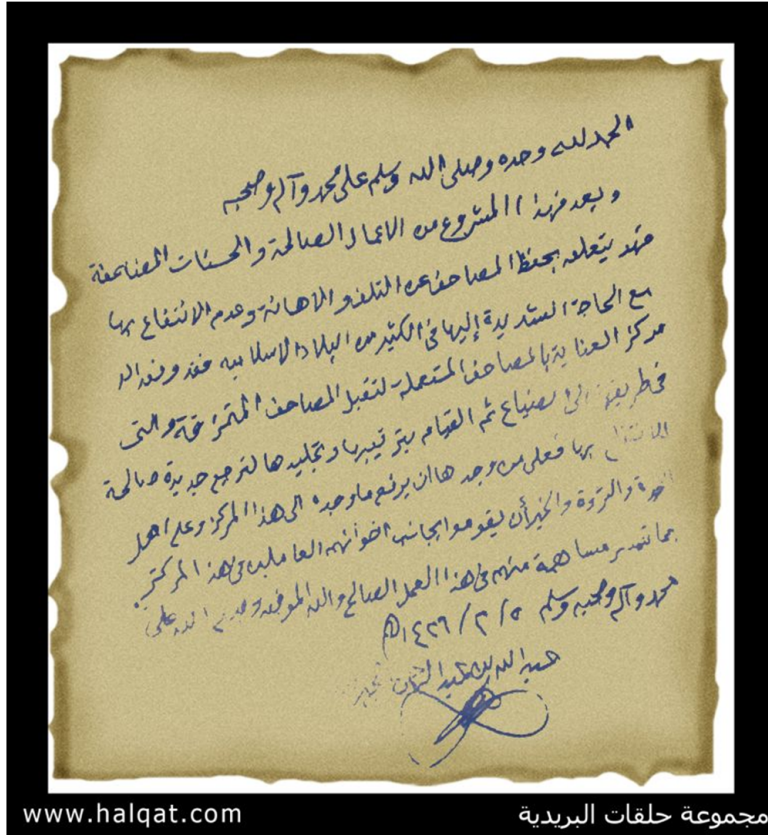 الحمد لله وحده وصلى الله وسلم على محمد وآله وصحبه
وبعد فهذا المشروع من الاعمال الصالحة والحسنات المضاعفة
فهو يتعلق بحفظ المصاحف عن التلف والاهانة وعدم الانتفاع بها
مع الحاجة الشديدة إليها في الكثير من البلاد الاسلامية فقد وفق الله
مركز العناية بالمصاحف المستعملة لتقبل المصاحف المتمزقة والتي
في طريقها الى الضياع ثم القيام بترتيبها وتجليدها لترجع جديدة صالحة
للانتفاع بها فعلى من وجدها ان يرفع ما وجده الى هذا المركز وعلى اهل
والثروة والخير أن يقوموا بجانب اخوانهم العاملين في هذا المركز
بما تيسر مساهمة منهم في هذا العمل الصالح والله الموفق وصلى الله على
محمد وآله وصحبه وسلم ٥/٢/١٤٢٦هـ
عبد الله بن عبد الرحمن
www.halqat.com
مجموعة حلقات البريدية